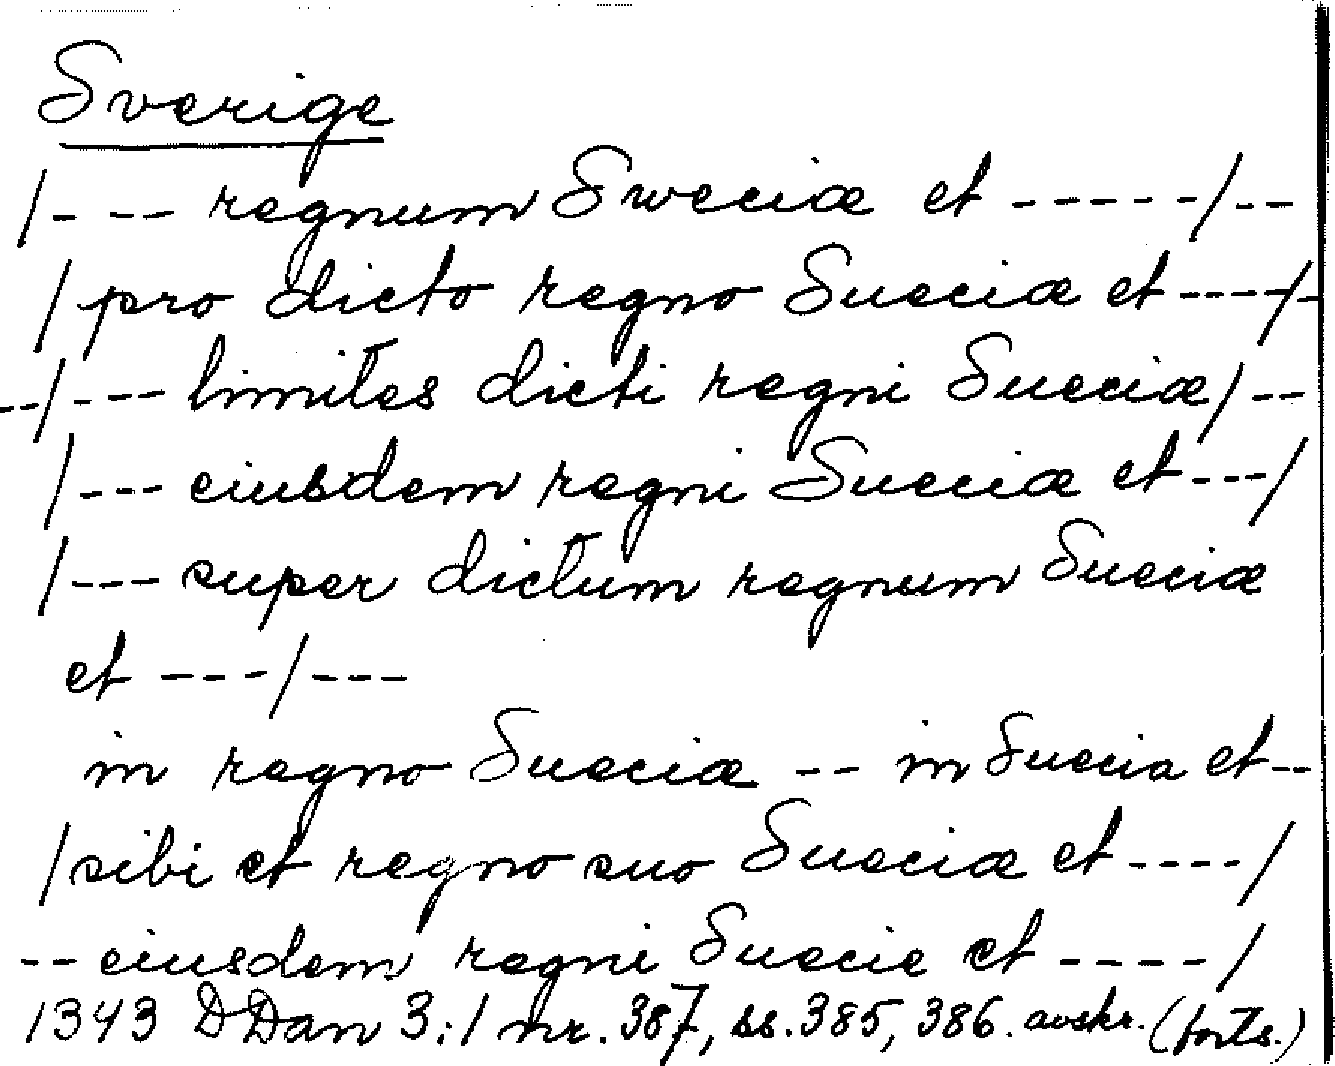 Sverige
/--- regnum Sweciæ et -----/--
/pro dicto regno Sueciæ et ----/-
--/---- limites dicti regni Sueciæ/--
/--- eiusdem regni Sueciæ et ---/
/--- super dictum regnum Sueciæ
et ---/---
in regno Sueciæ -- in Suecia et--
/sibi et regno suo Sueciæ et ----/
-- eiusdem regni Suecie et ----/
1343 DDan 3:1 nr. 387, ss. 385, 386. avskr. (forts.)